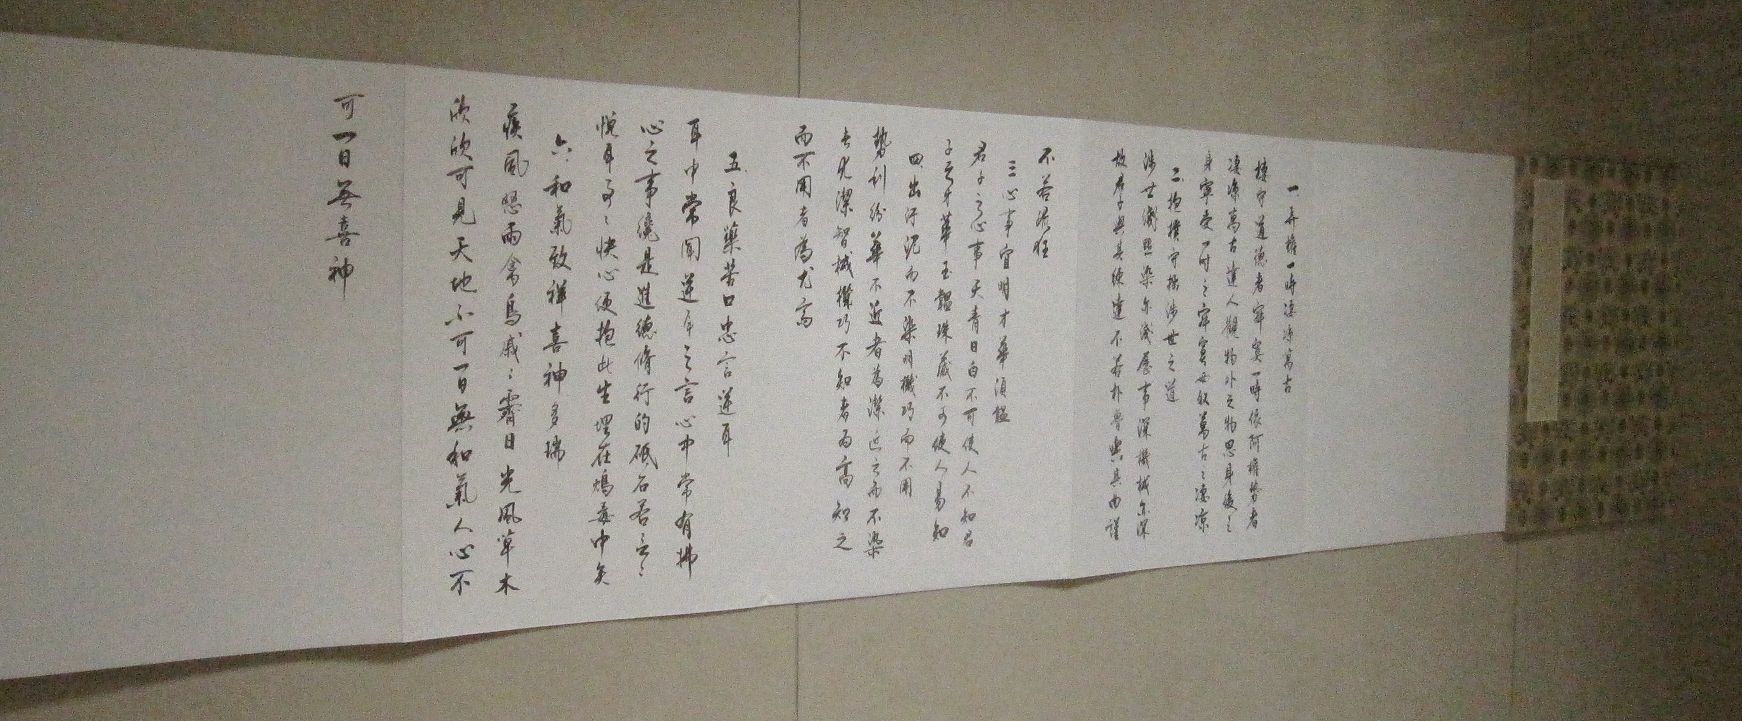 一弄權一時淒凉萬古
棲守道德者寂寞一時依阿權勢者
淒凉萬古達人觀物外之物思身後之
身寧受一时之寂寞毋取萬古之淒凉
二抱樸守拙涉世之道
涉世淺點染亦淺歷事深機械亦深
故君子與其練達不若朴魯與其曲謹
不若疏狂
三心事宜明才華須韞
君子之心事天青日白不可使人不知君
子之才華玉韞珠藏不可使人易知
四出汙泥而不染明機巧而不用
勢利紛華不近者為潔近之而不染
者尤潔智械機巧不知者為高知之
而不用者為尤高
五良藥苦口忠言逆耳
耳中常聞逆耳之言心中常有拂
心之事纔是進德脩行的砥石若言言
悅耳事事快心便把此生埋在鴆毒中矣
六和氣致祥喜神多瑞
疾風怒雨禽鳥戚戚霽日光風草木
欣欣可見天地不可一日無和氣人心不
可一日無喜神